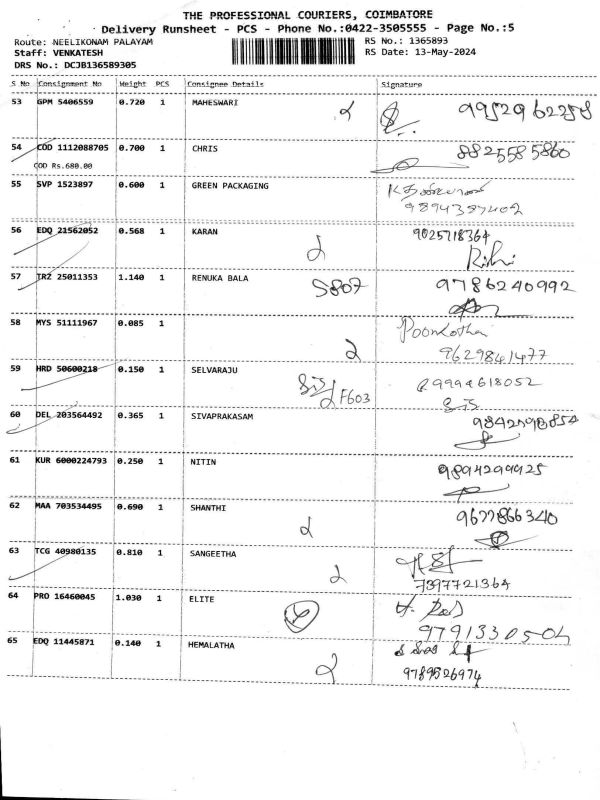 THE PROFESSIONAL COURIERS, COIMBATORE
Delivery Runsheet - PCS - Phone No.:0422-3505555 - Page No.:5
Route: NEELIKONAM PALAYAM
RS No.: 1365893
Staff: VENKATESH
RS Date: 13-May-2024
DRS No.: DCJB136589305
S No Consignment No Weight PCS Consignee Details Signature
53 GPM 5406559 0.720 1 MAHESWARI 9952962258
54 COD 1112088705 0.700 1 CHRIS 8825585860
COD Rs.680.00
55 SVP 1523897 0.600 1 GREEN PACKAGING
9894387402
56 EDQ 21562052 0.568 1 KARAN 9025718364
Rishi
57 TRZ 25011353 1.140 1 RENUKA BALA S807 9786240992
58 MYS 51111967 0.085 1 Poonkothai
9629841477
59 HRD 50600218 0.150 1 SELVARAJU F603 9994618052
60 DEL 203564492 0.365 1 SIVAPRAKASAM
61 KUR 6000224793 0.250 1 NITIN 9894299925
62 MAA 703534495 0.690 1 SHANTHI 9677866340
63 TCG 40980135 0.810 1 SANGEETHA
7397721364
64 PRO 16460045 1.030 1 ELITE
9791330504
65 EDQ 11445871 0.140 1 HEMALATHA
9789526974